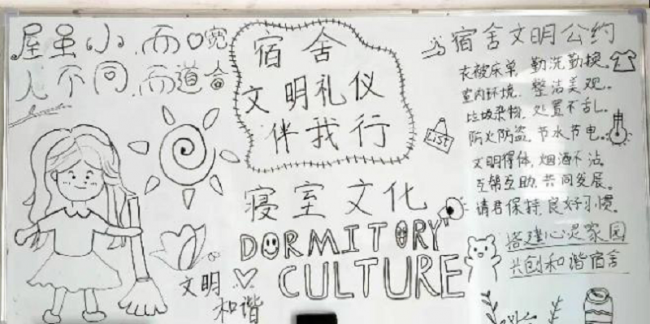 屋虽小,而口宽
人不同,而道合
宿舍
文明礼仪
伴我行
寝室文化
DORMITORY
CULTURE
文明
和谐
宿舍文明公约
衣被床单,勤洗勤换。
室内环境,整洁美观。
垃圾杂物,处置不乱。
防火防盗,节水节电。
文明得体,烟酒不沾。
互帮互助,共同发展。
请君保持,良好习惯。
LIST
搭建心灵家园
共创和谐宿舍